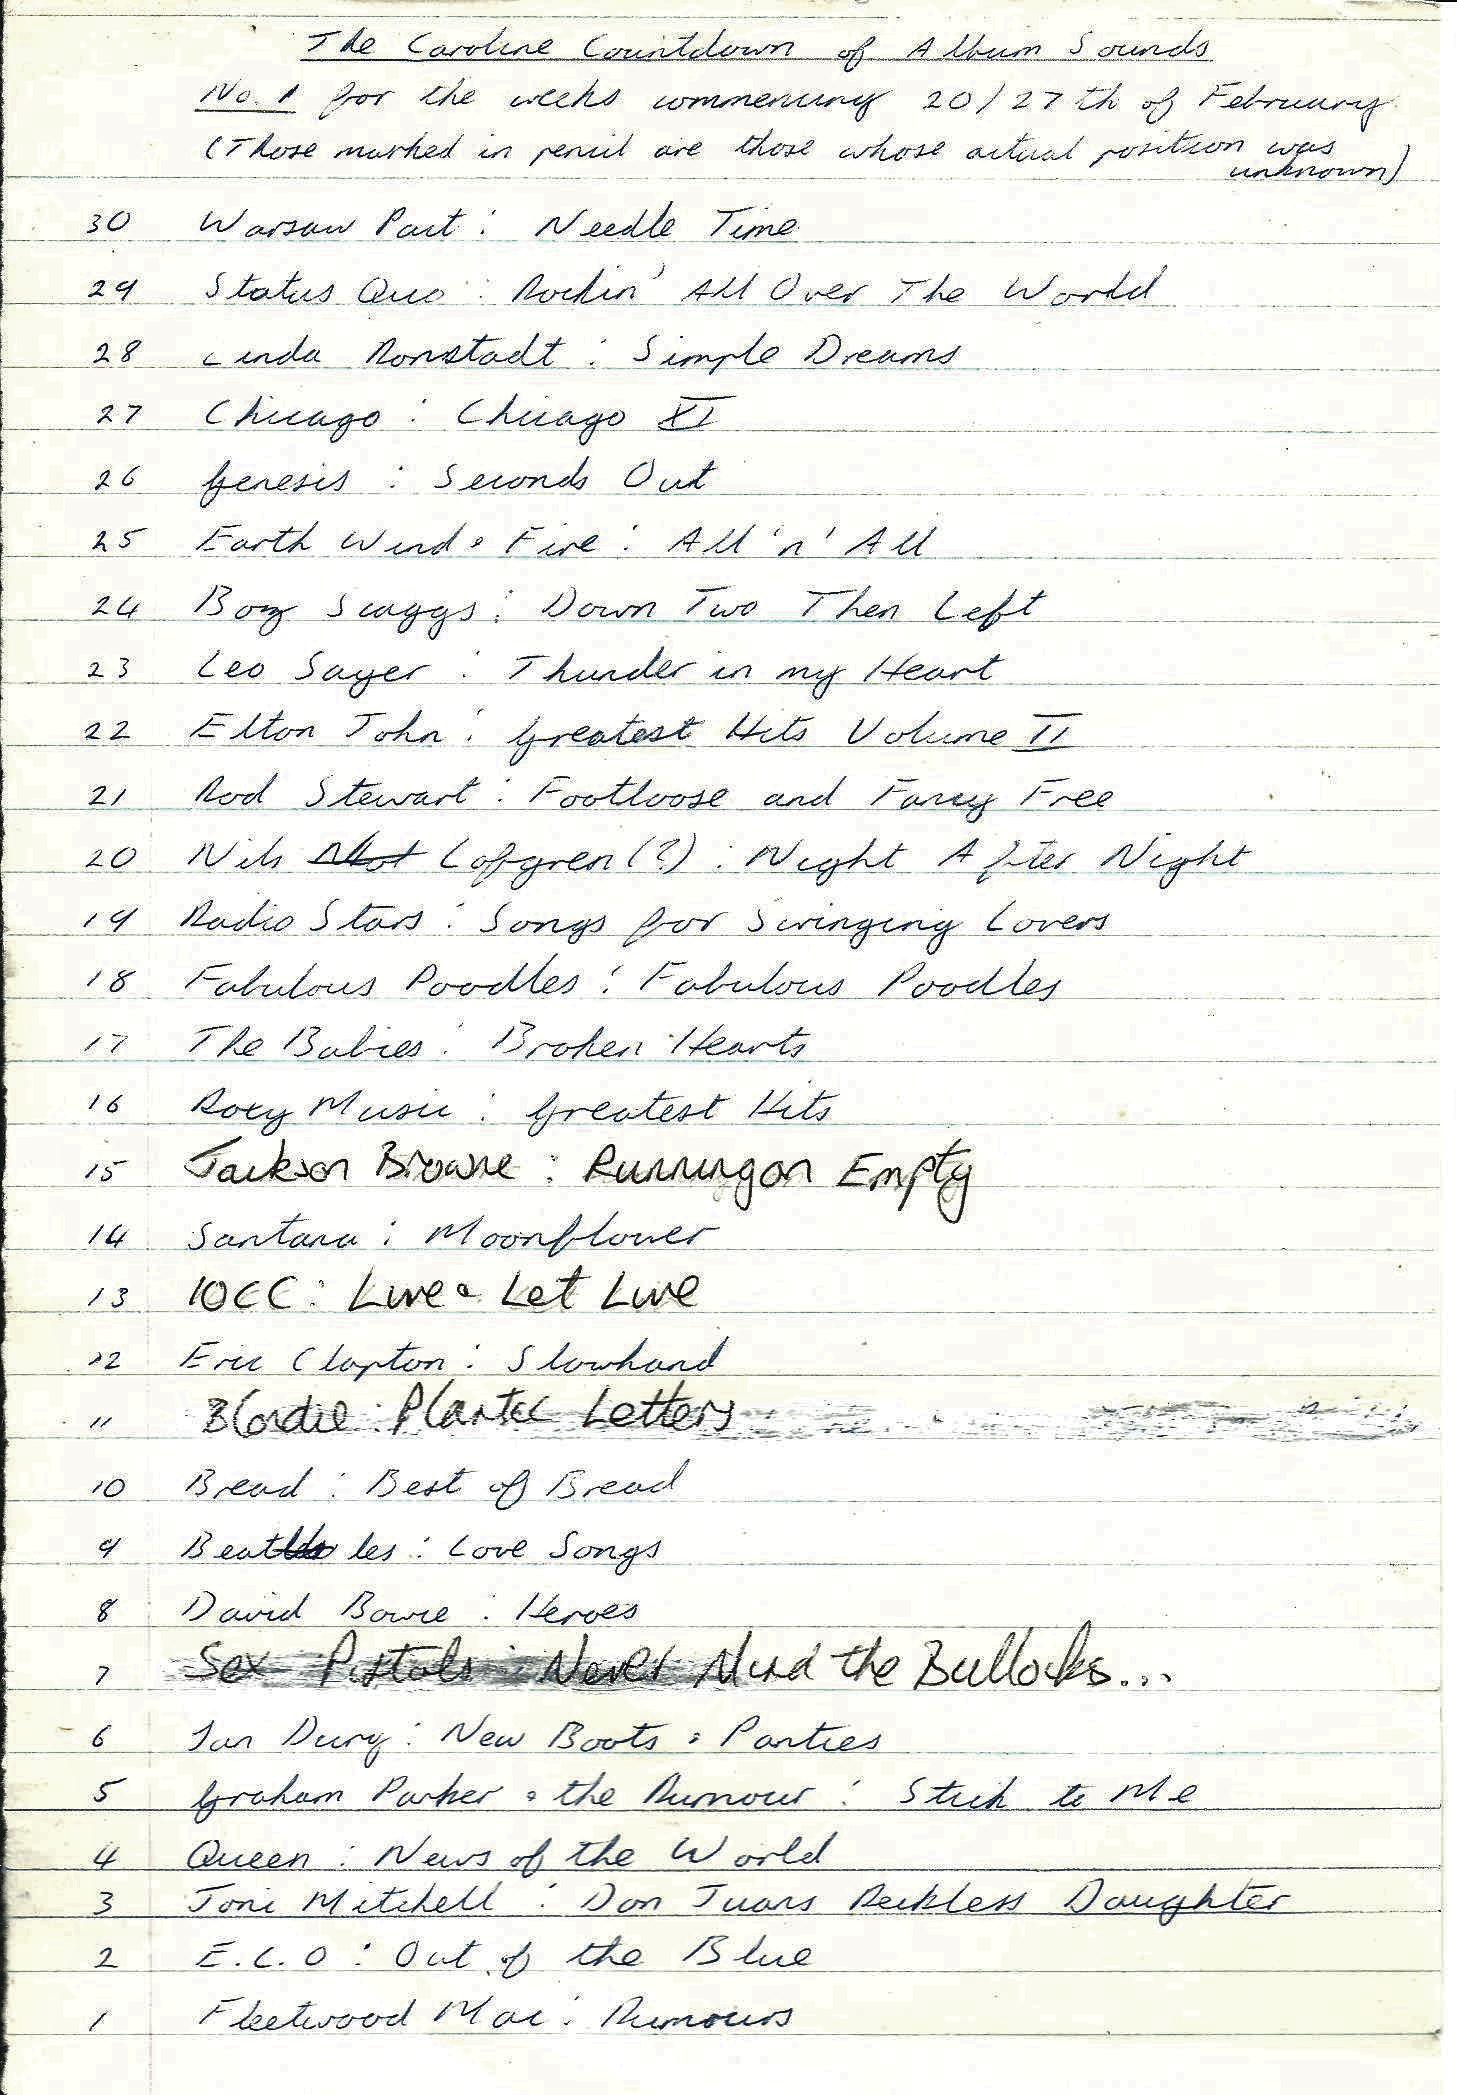 The Caroline Countdown of Album Sounds
No. 1 for the weeks commencing 20/27th of February
(Those marked in pencil are those whose actual position was
unknown)
30 Warsaw Pact: Needle Time
29 Status Quo: Rockin' All Over The World
28 Linda Ronstadt: Simple Dreams
27 Chicago: Chicago XI
26 Genesis: Seconds Out
25 Earth Wind & Fire: All 'n' All
24 Boz Scaggs: Down Two Then Left
23 Leo Sayer: Thunder in my Heart
22 Elton John: Greatest Hits Volume II
21 Rod Stewart: Footloose and Fancy Free
20 Nils Lofgren(?): Night After Night
19 Radio Stars: Songs for Swinging Lovers
18 Fabulous Poodles: Fabulous Poodles
17 The Babies: Broken Hearts
16 Roxy Music: Greatest Hits
15 Jackson Browne: Running on Empty
14 Santana: Moonflower
13 10CC: Live & Let Live
12 Eric Clapton: Slowhand
11 Blondie: Plastic Letters
10 Bread: Best of Bread
9 Beatles: Love Songs
8 David Bowie: Heroes
7 Sex Pistols: Never Mind the Bullocks...
6 Ian Dury: New Boots & Panties
5 Graham Parker & the Rumour: Stick to Me
4 Queen: News of the World
3 Joni Mitchell: Don Juans Reckless Daughter
2 E.L.O: Out of the Blue
1 Fleetwood Mac: Rumours